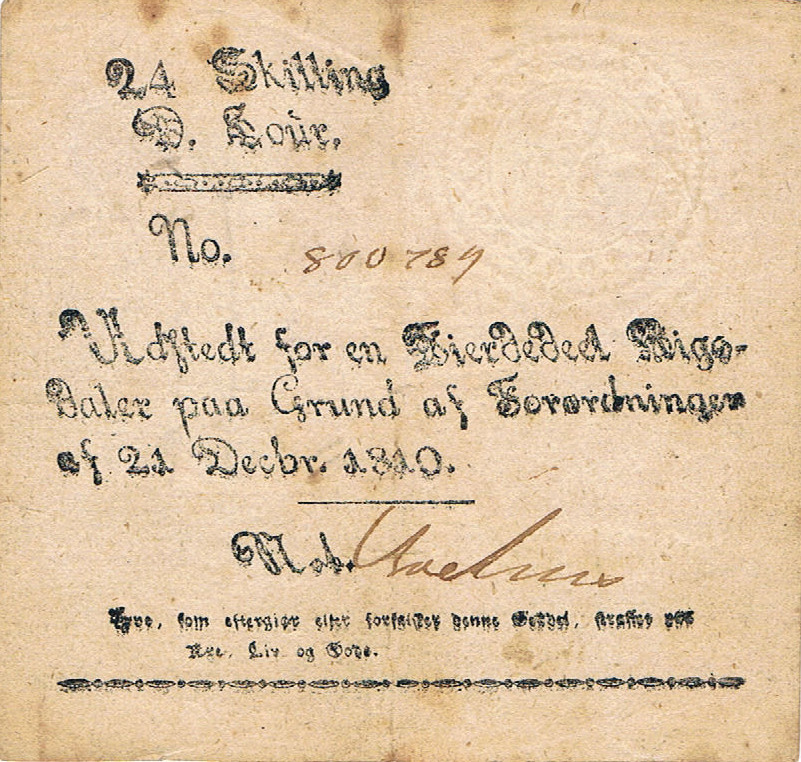 24 Skilling
D. Cour.
No. 800789
Udstedt for en Fierdedeel Rigs-
daler paa Grund af Forordningen
af 21 Decbr. 1810.
Not.
som eftergiør eller forfalsker denne Seddel, straffes paa
Ære, Liv og Gods.